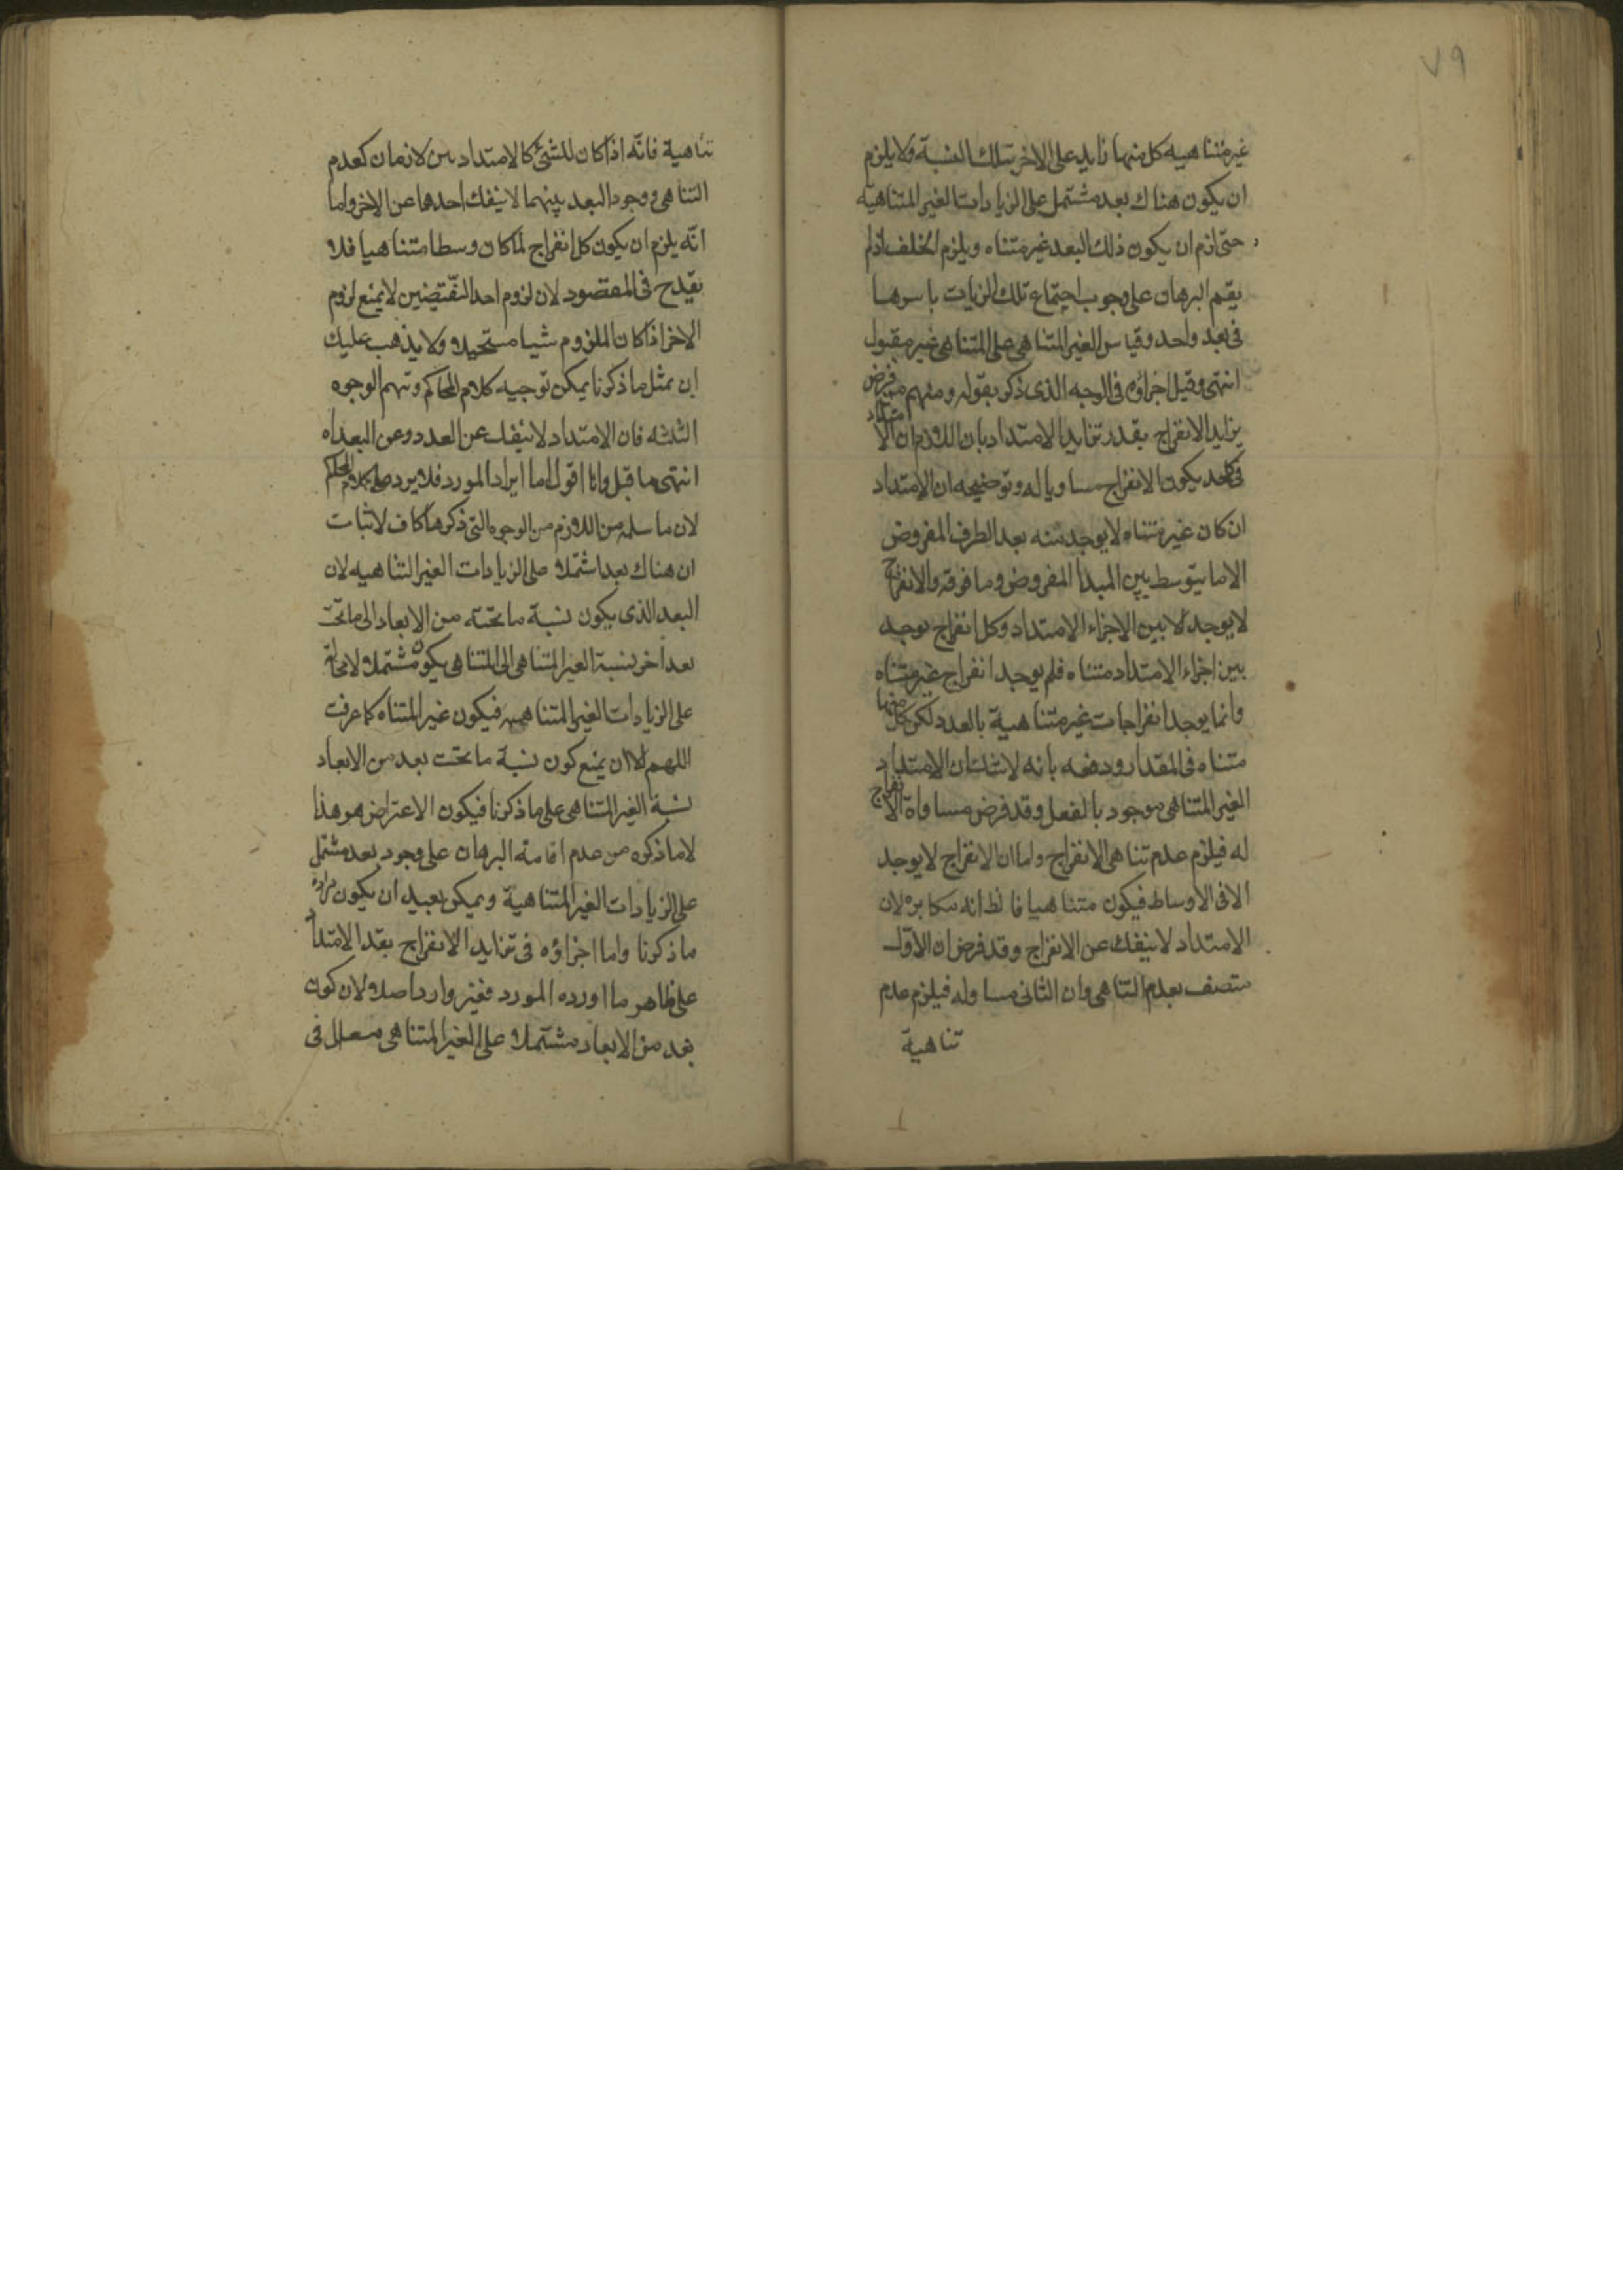 ٧٩
غير متناهيه كل منها زايد على الاخر بتلك النسبة ولا يلزم
ان يكون هناك بعد مشتمل على الزيادات الغير المتناهية
حتى لزم ان يكون ذلك البعد غير متناه ويلزم الخلف اذ لم
يقم البرهان على وجوب اجتماع تلك الزيات باسرها
فى بعد واحد وقياس الغير المتناهى على المتناهى غير مقبول
انتهى وقيل اجراؤه فى الوجه الذى ذكر بقوله ومنهم من فرض
يزايد الانفراج بقدر تزايد الامتداد بان اللازم ان الامتداد
فى كل حد يكون الانفراج مساويا له وتوضيحه ان الامتداد
ان كان غير متناه لا يوجد منه بعد الطرف المفروض
الا ما يتوسط بين المبدأ المفروض وما فوقه والانفراج
لا يوجد الا بين الاجزاء الامتداد وكل انفراج يوجد
بين اجزاء الامتداد متناه فلم يوجد انفراج غير متناه
وانما يوجد انفراجات غير متناهية بالعدد لكن كل منها
متناه فى المقدار ودفعه بانه لا شك ان الامتداد
الغير المتناهى موجود بالفعل وقد فرض مساواة الانفراج
له فيلزم عدم تناهى الانفراج واما ان الانفراج لا يوجد
الا فى الاوساط فيكون متناهيا فالظ انه مكابره لان
الامتداد لا ينفك عن الانفراج وقد فرض ان الاول
متصف بعدم التناهى وان الثانى مساو له فيلزم عدم
تناهية
تناهية فانه اذا كان للشئ كالامتداد من لازمان كعدم
التناهى ووجود البعد بينهما لا ينفك احدهما عن الاخر واما
انه يلزم ان يكون كل انفراج لما كان وسطا متناهيا فلا
يقدح فى المقصود لان لزوم احد النقيضين لا يمنع لزوم
الاخر اذا كان الملزوم شيا مستحيلا ولا يذهب عليك
ان بمثل ما ذكرنا يمكن توجيه كلام المحاكم وتهم الوجوه
الثلثه فان الامتداد لا ينفك عن العدد وعن البعد اه
انتهى ما قيل وانا اقول اما ايراد المورد فلا يرد على كلام المحاكم
لان ما سلمه من اللازم من الوجوه التى ذكرها كاف لاثبات
ان هناك بعدا شتملا على الزيادات الغير التناهيه لان
البعد الذى يكون نسبة ما تحته من الابعاد الى ما تحت
بعد اخر نسبة الغير المتناهى الى المتناهى يكون مشتملا لا محالة
على الزيادات الغير المتناهيه فيكون غير المتناه كما عرفت
اللهم الا ان يمنع كون نسبة ما تحت بعد من الابعاد
نسبة الغير المتناهى على ما ذكرنا فيكون الاعتراض هو هذا
لا ما ذكره من عدم اقامة البرهان على وجود بعد مشتمل
على الزيادات الغير المتناهية ويمكن بعيد ان يكون مراده
ما ذكرنا واما اجراؤه فى تزايد الانفراج بقد الامتداد
على ظاهر ما اورده المورد فغير وارد اصلا لان كون
بعد من الابعاد مشتملا على الغير المتناهى معلل فى